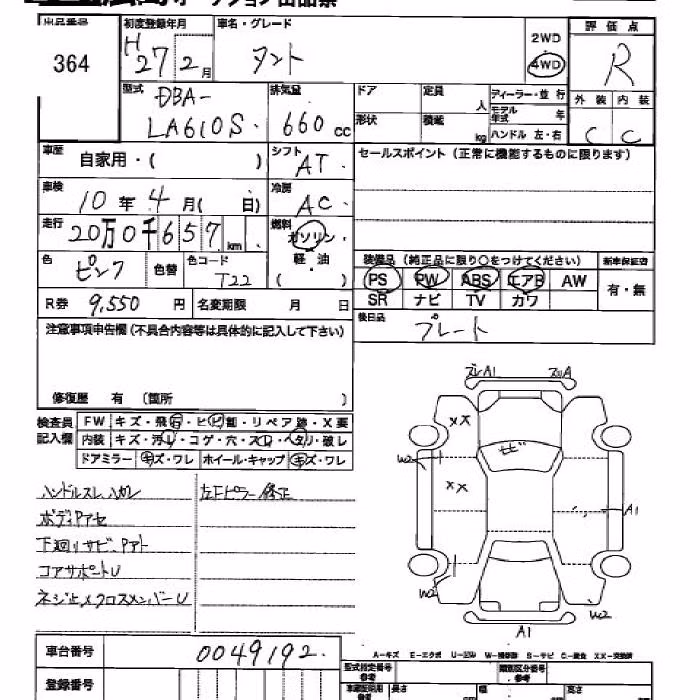 出品番号 初度登録年月 車名・グレード 評価点
364 H27 2月 タント 2WD 4WD R
型式 排気量 ドア 定員 人 ディーラー・並行 外装 内装
DBA- LA610S 660cc 形状 積載 kg モデル年式 年 ハンドル 左・右 C C
車歴 自家用・( ) シフト AT セールスポイント(正常に機能するものに限ります)
車検 10年4月( 日) 冷房 AC
走行 20万0千657km 燃料 ガソリン・軽・油 ( )
装備品(純正品に限り○をつけてください) 新車保証書
色 ピンク 色替 色コード T22
PS PW ABS エアB AW 有・無
SR ナビ TV カワ
R券 9,550円 名変期限 月 日 後日品 プレート
注意事項申告欄(不具合内容等は具体的に記入して下さい)
修復歴 有 (箇所 )
検査員記入欄 FW キズ・飛石・ヒビ割・リペア跡・X要
内装 キズ・汚レ・コゲ・穴・スレ・ヘタリ・破レ
ドアミラー キズ・ワレ ホイール・キャップ キズ・ワレ
ハンドルスレ、ハガレ 左Fピラー修正
ボディPアセ
下廻リサビ、Pアト
コアサポートU
ネジ止メクロスメンバーU
A1
XX
ヒビ
W2
XX
A1
W2
W2
A1
A-キズ E-エクボ U-凹 W-補修跡 S-サビ C-腐食 XX-交換済
車台番号 0049192
型式指定番号 参考 類別区分番号 参考
登録番号 長さ 幅 高さ